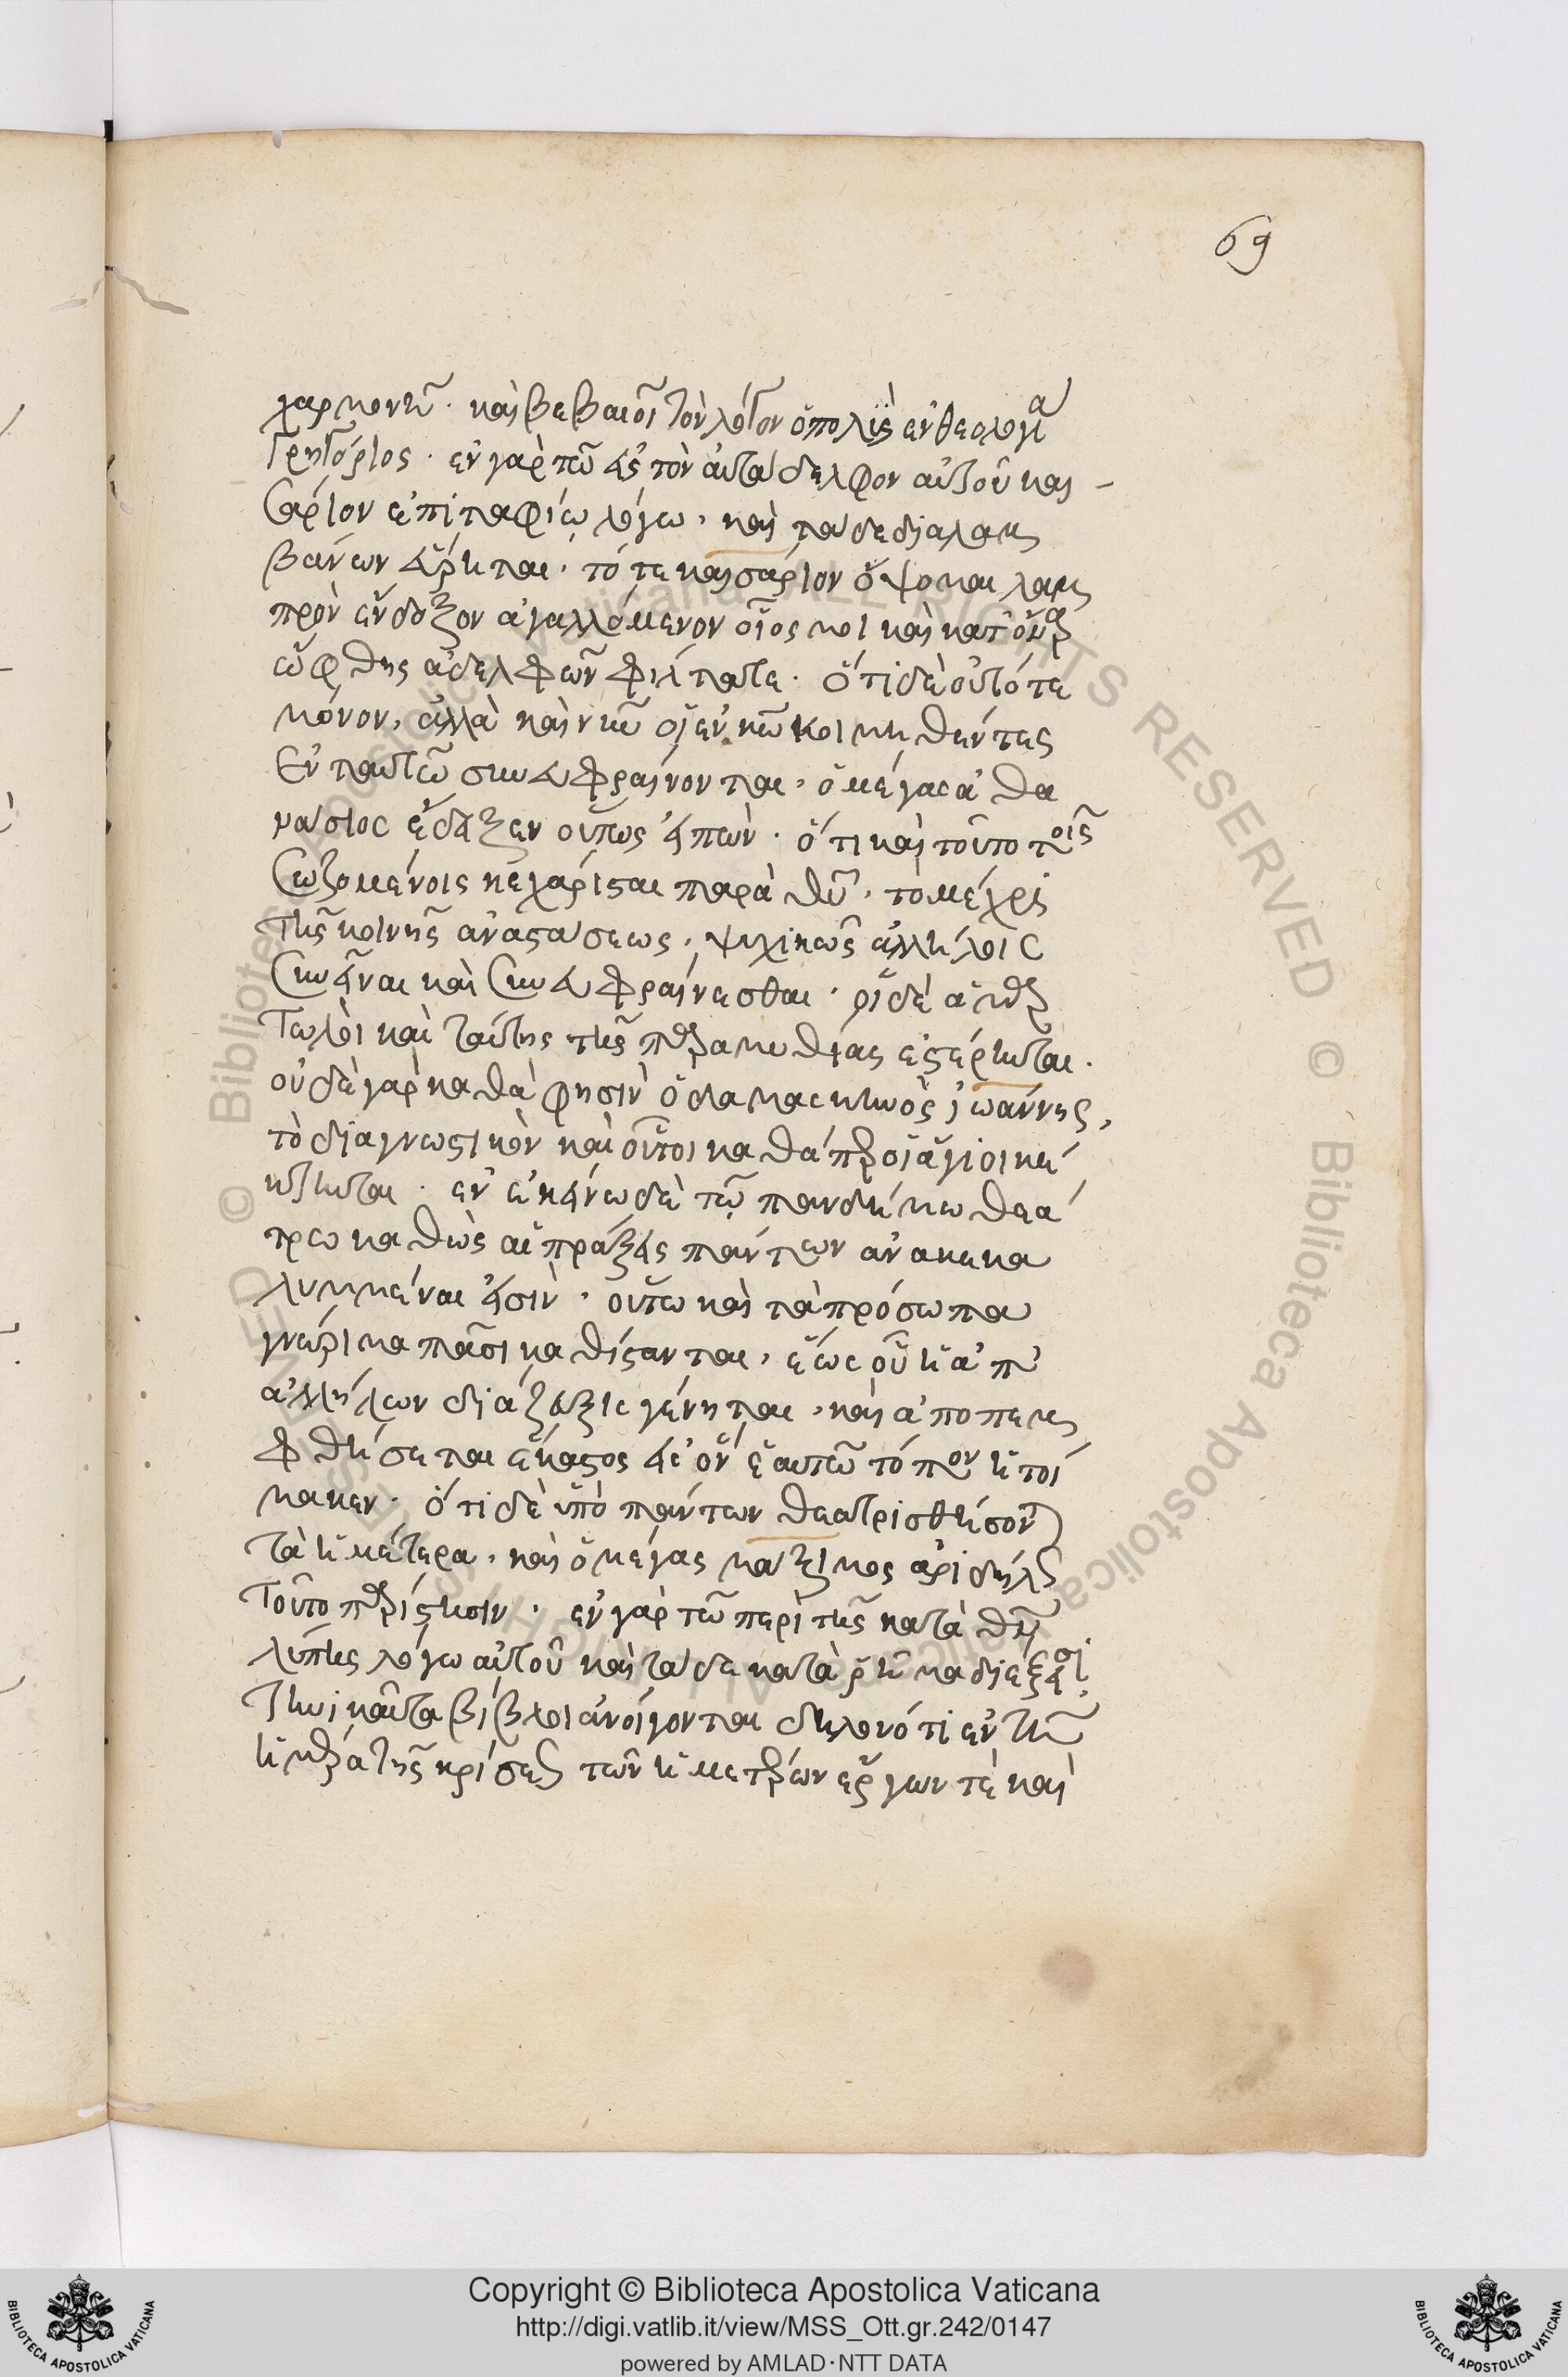 69
χαρμονῆ. καὶ βεβαιοῖ τὸν λόγον ὁ πολὺς ἐν θεολογίᾳ
Γρηγόριος. ἐν γὰρ τῶ εἰς τὸν αὐτάδελφον αὐτοῦ και-
σάριον ἐπιταφίω λόγω, καὶ τάδε διαλαμ
βάνων εἴρηται. τότε καισάριον ὄψομαι λαμ
πρὸν ἔνδοξον ἀγαλλόμενον οἷος μοι καὶ κατ' ὄναρ
ὤφθης ἀδελφῶν φίλτατε. ὅτι δὲ οὐ τότε
μόνον, ἀλλὰ καὶ νῦν οἱ ἐν κῶ κοιμηθέντες
ἐν ταυτῶ συνευφραίνονται, ὁ μέγας ἀθα
νάσιος ἔδειξεν οὕτως εἰπών. ὅτι καὶ τοῦτο τοῖς
σωζομένοις κεχάρισται παρὰ θυ, τὸ μέχρι
τῆς κοινῆς ἀναστάσεως, ψυχικῶς ἀλλήλοις
συνεῖναι καὶ συνευφραίνεσθαι. οἱ δὲ ἁμαρ
τωλοὶ καὶ ταύτης τῆς παραμυθίας ἐστέρηνται.
οὐδὲ γὰρ καθά φησὶν ὁ δαμασκηνὸς ἰωάννης,
τὸ διαγνωστικὸν καὶ οὗτοι καθάπερ οἱ ἅγιοι κέ
κτηνται. ἐν ἐκείνω δὲ τῶ πανδήμω θεά
τρω καθὼς αἱ πράξεις πάντων ἀνακεκα
λυμμέναι εἰσὶν, οὕτω καὶ τὰ πρόσωπα
γνώριμα πᾶσι καθίστανται, ἕως οὗ ἡ ἀπ'
ἀλλήλων διάζευξις γένηται, καὶ ἀποπεμ
φθήσεται ἕκαστος εἰς ὃν ἑαυτῶ τόπον ἡτοί
μασεν. ὅτι δὲ ὑπὸ πάντων θεατρισθήσονται
τὰ ἡμέτερα, καὶ ὁ μέγας μάξιμος ἀριδήλως
τοῦτο παρίστησιν. ἐν γὰρ τῶ περὶ τῆς κατὰ θν
λύπης λόγω αὐτοῦ καὶ τάδε κατὰ ῥῆμα διέξεισι.
τηνικαῦτα βίβλοι ἀνοίγονται δηλονότι ἐν τῆ
ἡμέρα τῆς κρίσεως τῶν ἡμετέρων ἔργων τὲ καὶ
Copyright © Biblioteca Apostolica Vaticana
http://digi.vatlib.it/view/MSS_Ott.gr.242/0147
powered by AMLAD·NTT DATA